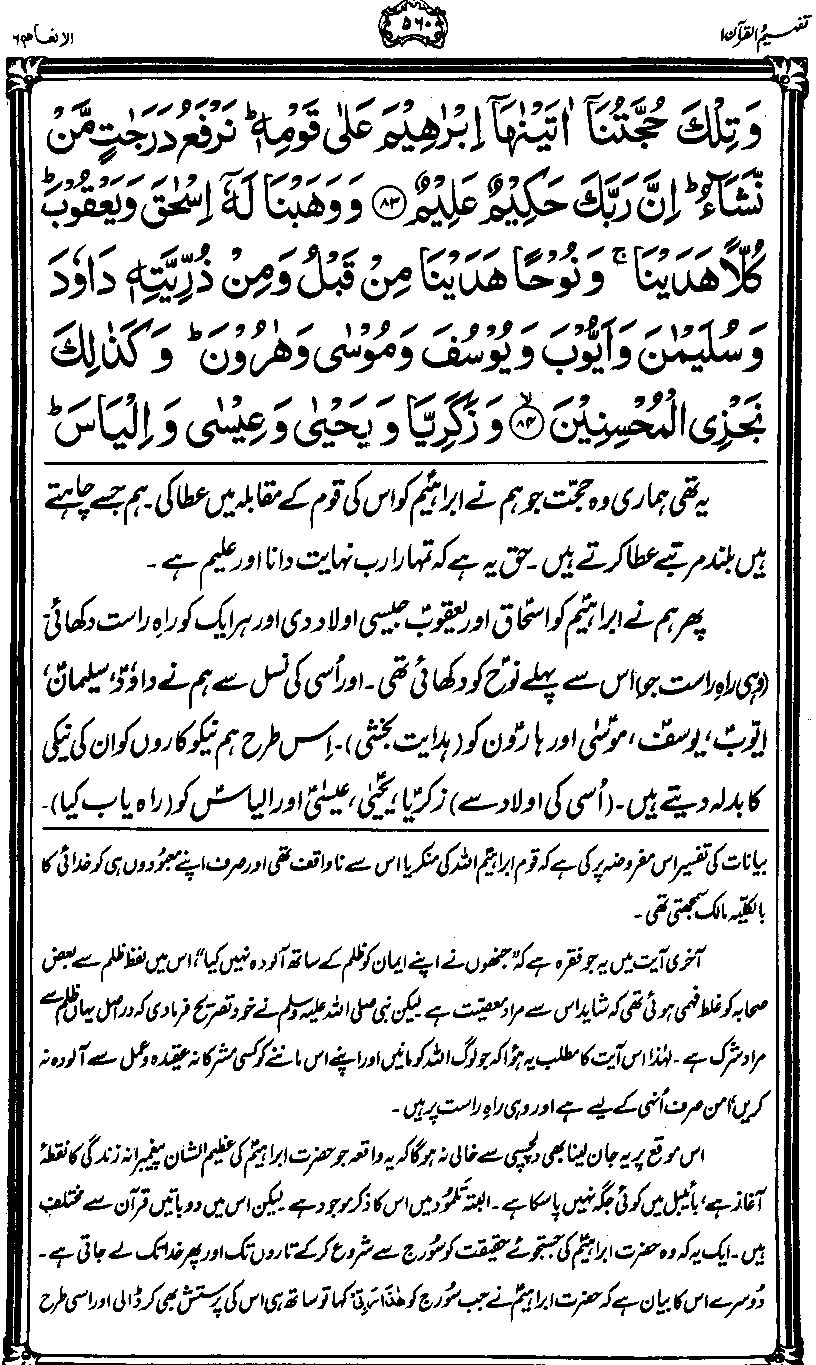 تفہیم القرآن ۱
۵۶۰
الانعام ۶
وَتِلْكَ حُجَّتُنَاۤ اٰتَيْنٰهَاۤ اِبْرٰهِيْمَ عَلٰى قَوْمِهٖ ؕ نَرْفَعُ دَرَجٰتٍ مَّنْ
نَّشَآءُ ؕ اِنَّ رَبَّكَ حَكِيْمٌ عَلِيْمٌ ﴿۸۳﴾ وَوَهَبْنَا لَهٗۤ اِسْحٰقَ وَيَعْقُوْبَ ؕ
كُلًّا هَدَيْنَا ۚ وَنُوْحًا هَدَيْنَا مِنْ قَبْلُ وَمِنْ ذُرِّيَّتِهٖ دَاوٗدَ
وَسُلَيْمٰنَ وَاَيُّوْبَ وَيُوْسُفَ وَمُوْسٰى وَهٰرُوْنَ ؕ وَكَذٰلِكَ
نَجْزِى الْمُحْسِنِيْنَ ﴿۸۴﴾ۙ وَزَكَرِيَّا وَيَحْيٰى وَعِيْسٰى وَاِلْيَاسَ ؕ
یہ تھی ہماری وہ حجّت جو ہم نے ابراہیمؑ کو اس کی قوم کے مقابلہ میں عطا کی۔ ہم جسے چاہتے
ہیں بلند مرتبے عطا کرتے ہیں۔ حق یہ ہے کہ تمہارا رب نہایت دانا اور علیم ہے۔
پھر ہم نے ابراہیمؑ کو اسحاقؑ اور یعقوبؑ جیسی اولاد دی اور ہر ایک کو راہِ راست دکھائی
(وہی راہِ راست جو) اس سے پہلے نوحؑ کو دکھائی تھی۔ اور اُسی کی نسل سے ہم نے داوٗدؑ، سلیمانؑ،
ایّوبؑ، یوسفؑ، موسٰیؑ اور ہارونؑ کو (ہدایت بخشی)۔ اِس طرح ہم نیکوکاروں کو ان کی نیکی
کا بدلہ دیتے ہیں۔ (اُسی کی اولاد سے) زکریّاؑ، یحییٰؑ، عیسٰیؑ اور الیاسؑ کو (راہ یاب کیا)۔
بیانات کی تفسیر اس مفروضہ پر کی ہے کہ قومِ ابراہیمؑ اللہ کی منکر یا اس سے ناواقف تھی اور صرف اپنے معبودوں ہی کو خدائی کا
بالکلیّہ مالک سمجھتی تھی۔
آخری آیت میں یہ جو فقرہ ہے کہ ”جنھوں نے اپنے ایمان کو ظلم کے ساتھ آلودہ نہیں کیا“، اس میں لفظ ظلم سے بعض
صحابہ کو غلط فہمی ہوئی تھی کہ شاید اس سے مراد معصیت ہے لیکن نبی صلی اللہ علیہ وسلم نے خود تصریح فرما دی کہ دراصل یہاں ظلم سے
مراد شرک ہے۔ لہٰذا اس آیت کا مطلب یہ ہوا کہ جو لوگ اللہ کو مانیں اور اپنے اس ماننے کو کسی مشرکانہ عقیدہ و عمل سے آلودہ نہ
کریں، امن صرف اُنہی کے لیے ہے اور وہی راہِ راست پر ہیں۔
اس موقع پر یہ جان لینا بھی دلچسپی سے خالی نہ ہوگا کہ یہ واقعہ جو حضرت ابراہیمؑ کی عظیم الشان پیغمبرانہ زندگی کا نقطۂ
آغاز ہے، بائیبل میں کوئی جگہ نہیں پا سکا ہے۔ البتہ تَلمُود میں اس کا ذکر موجود ہے۔ لیکن اس میں دو باتیں قرآن سے مختلف
ہیں۔ ایک یہ کہ وہ حضرت ابراہیمؑ کی جستجوئے حقیقت کو سُورج سے شروع کر کے تاروں تک اور پھر خدا تک لے جاتی ہے۔
دُوسرے اس کا بیان ہے کہ حضرت ابراہیمؑ نے جب سُورج کو هٰذَا رَبِّیْ کہا تو ساتھ ہی اس کی پرستش بھی کر ڈالی اور اسی طرح